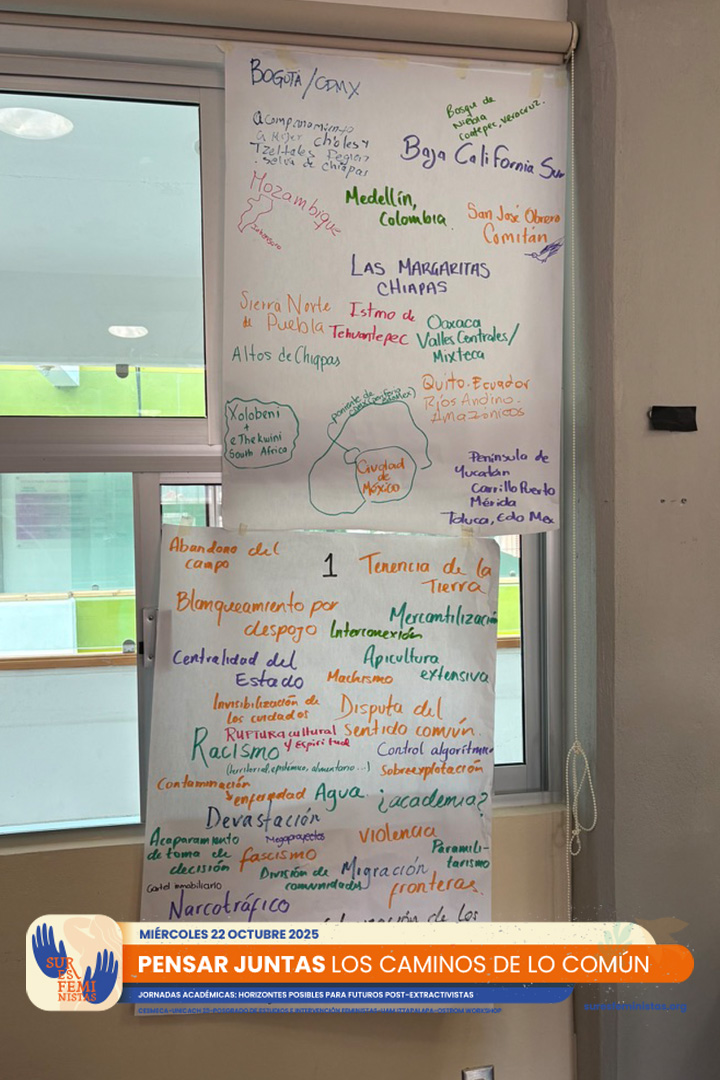 BOGOTA/CDMX
Bosque de
Niebla
Coatepec, Veracruz.
Acompañamiento
a Mujer choles y
Tzeltales Region
selva de chiapas
Baja California Sur
Mozambique
Medellín,
Colombia
San José Obrero
Comitán
LAS MARGARITAS
CHIAPAS
Sierra Norte
de Puebla
Istmo de
Tehuantepec
Oaxaca
Valles Centrales/
Mixteca
Altos de Chiapas
Quito-Ecuador
Ríos Andino-
Amazónicos
Xolobeni
+
eThekwini
South Africa
poniente de
Ciudad
de
México
Península de
Yucatán
Carrillo Puerto
Mérida
Toluca, Edo Mex
Abandono del
campo
1
Tenencia de la
Tierra
Blanqueamiento por
despojo
Mercantilización
Interconexión
Centralidad del
Estado
Apicultura
extensiva
Machismo
Invisibilización de
los cuidados
Disputa del
sentido común
RUPTURA cultural
y Espiritual
Racismo
(territorial, epistémico, alimentario...)
Control algorítmico
Sobreexplotación
Contaminación
y enfermedad
Agua
¿academia?
Devastación
Acaparamiento
de toma de
decisión
Megaproyectos
violencia
fascismo
Paramili-
tarismo
División de
comunidades
Migración
Cartel inmobiliario
fronteras
Narcotráfico
de los
MIÉRCOLES 22 OCTUBRE 2025
SUR
ES
FEMI
NISTAS
PENSAR JUNTAS LOS CAMINOS DE LO COMÚN
JORNADAS ACADÉMICAS: HORIZONTES POSIBLES PARA FUTUROS POST-EXTRACTIVISTAS